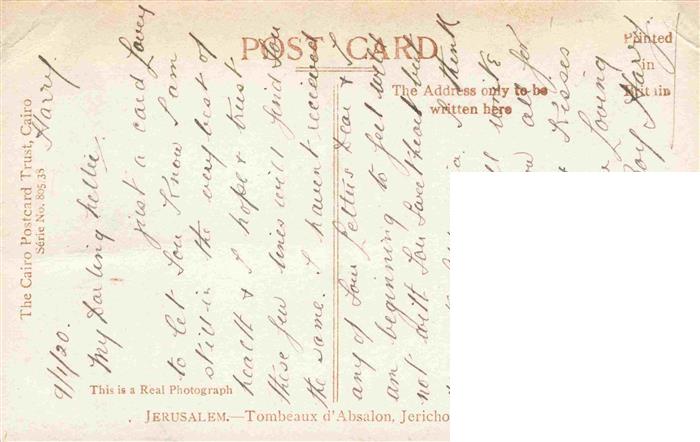 POST CARD
The Address only to be
written here
Printed
in
Britain
The Cairo Postcard Trust, Cairo
Série No. 805.33
This is a Real Photograph
JERUSALEM.—Tombeaux d'Absalon, Jericho
Harry.
9/1/20.
My Darling Nellie.
just a card Lovey
to let you Know I am
still in the very best of
health & I hope & trust
these few lines will find you
the same. I havent received
any of your Letters Dear & I
am beginning to get wild
not with you Sweetheart but
I think
write
all for
Kisses
Loving
Boy Harry